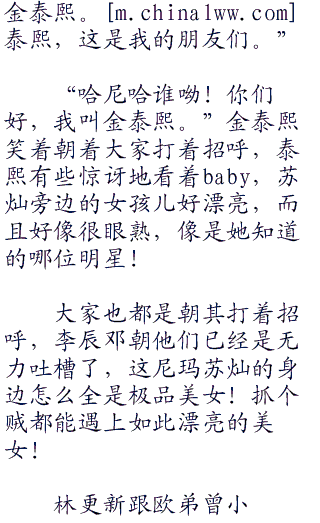 金泰熙。[m.china1ww.com]
泰熙，这是我的朋友们。”
“哈尼哈谁呦！你们
好，我叫金泰熙。”金泰熙
笑着朝着大家打着招呼，泰
熙有些惊讶地看着baby，苏
灿旁边的女孩儿好漂亮，而
且好像很眼熟，像是她知道
的哪位明星！
大家也都是朝其打着招
呼，李辰邓朝他们已经是无
力吐槽了，这尼玛苏灿的身
边怎么全是极品美女！抓个
贼都能遇上如此漂亮的美
女！
林更新跟欧弟曾小